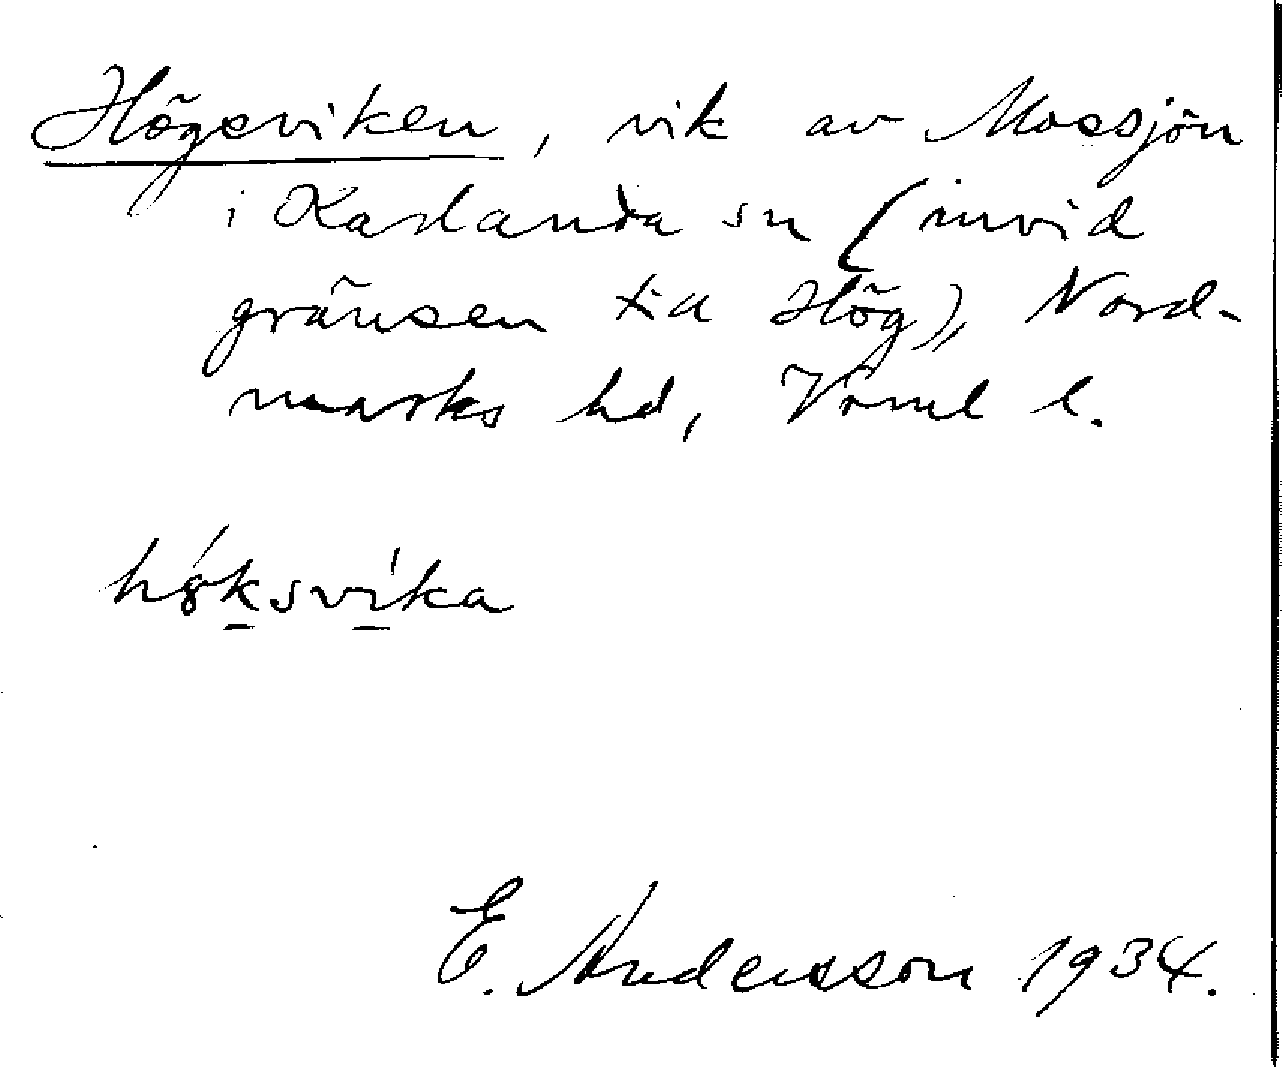 Högsviken, vik av Mossjön
i Karlanda sn (invid
gränsen t:a Hög), Nord-
marks hd, Vrml l.
høksvika
E. Andersson 1934.